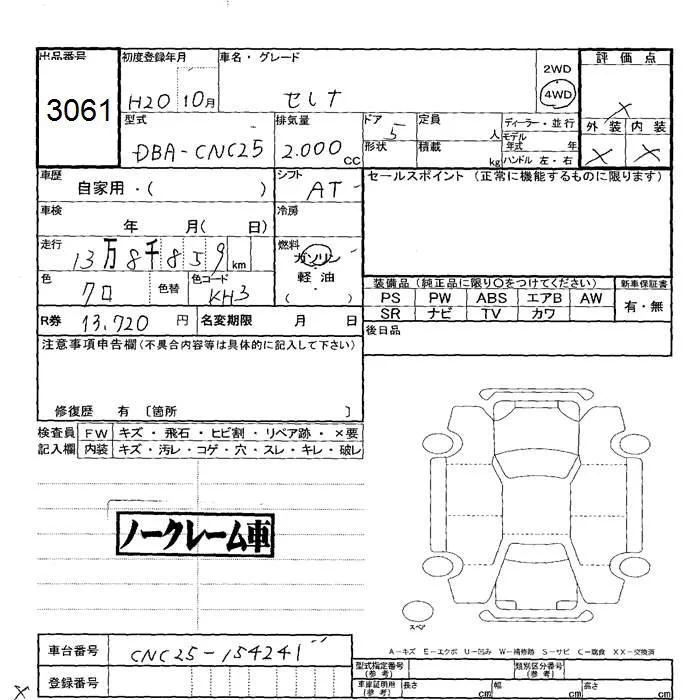 出品番号 初度登録年月 車名・グレード 評価点
3061 H20 10月 セレナ 2WD 4WD ×
型式 排気量 ドア 定員 ディーラー・並行 外装 内装
DBA-CNC25 2.000cc 5 人 モデル年式 年 × ×
形状 積載 kg ハンドル 左・右
車歴 シフト セールスポイント (正常に機能するものに限ります)
自家用・( ) AT
車検 冷房
年 月( 日)
走行 燃料
13万8千859km ガソリン
色 色替 色コード 軽油 装備品 (純正品に限り○をつけてください) 新車保証書
クロ KH3 ( ) PS PW ABS エアB AW 有・無
R券 13.720 円 名変期限 月 日 SR ナビ TV カワ
注意事項申告欄(不具合内容等は具体的に記入して下さい) 後日品
修復歴 有 〔箇所 〕
検査員 FW キズ・飛石・ヒビ割・リペア跡・×要
記入欄 内装 キズ・汚レ・コゲ・穴・スレ・キレ・破レ
ノークレーム車
スペア
車台番号 CNC25-154241 A-キズ E-エクボ U-凹み W-補修跡 S-サビ C-腐食 XX-交換済
型式指定番号(参考) 類別区分番号(参考)
登録番号 車庫証明用(参考) 長さ cm 幅 cm 高さ cm
×